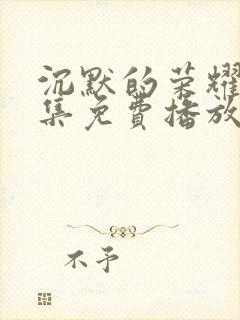 沉默的荣耀
集免费播放
不予